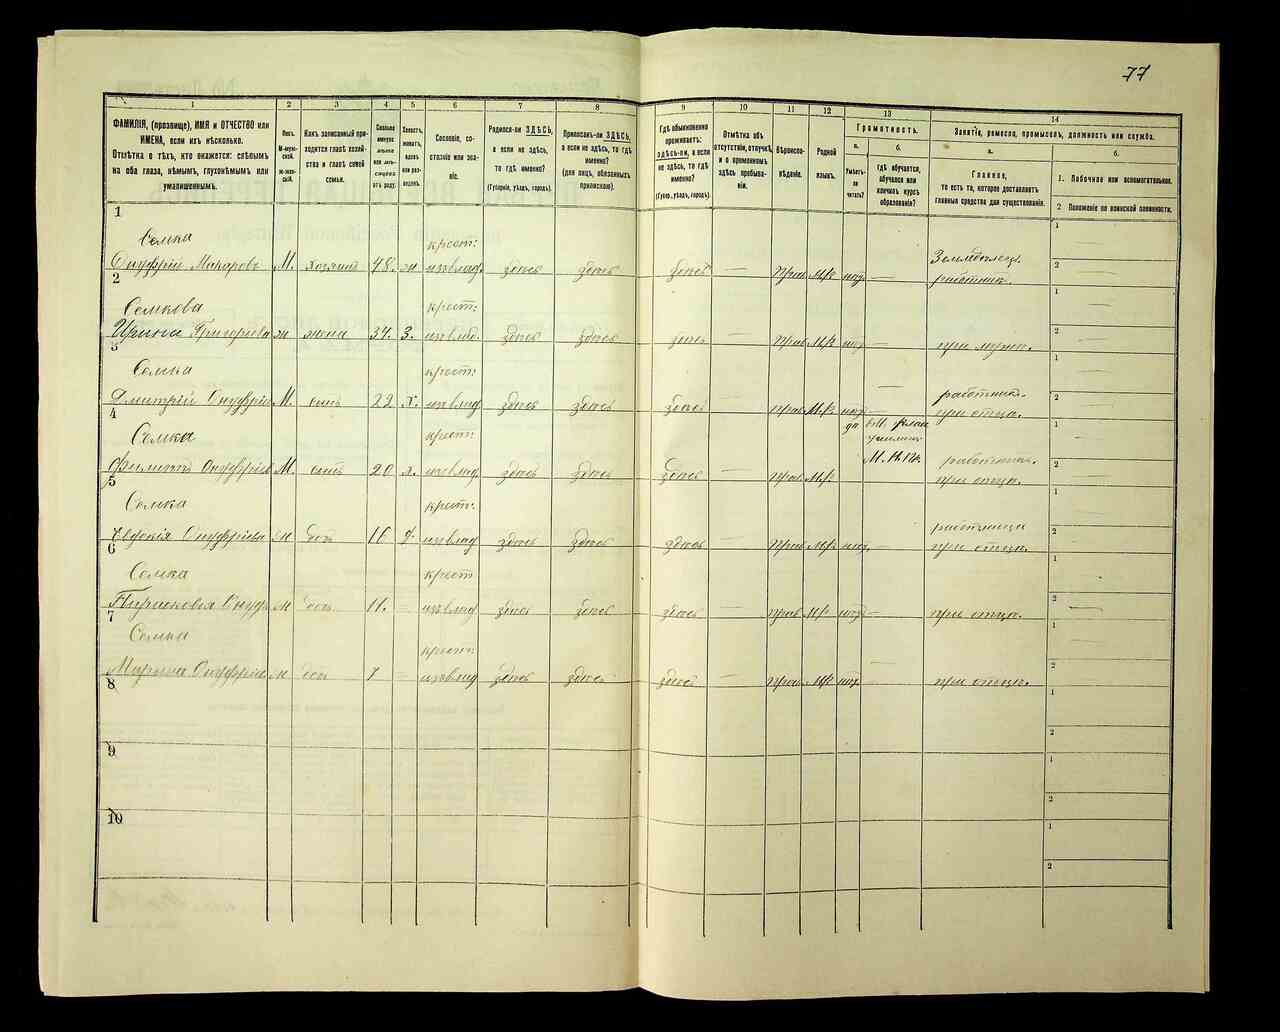 77
1 2 3 4 5 6 7 8 9 10 11 12 13 14
ФАМИЛІЯ, (прозвище), ИМЯ и ОТЧЕСТВО или
ИМЕНА, если ихъ нѣсколько.
Отмѣтка о тѣхъ, кто окажется: слѣпымъ
на оба глаза, нѣмымъ, глухонѣмымъ или
умалишеннымъ.
Полъ.
М-муж-
ской.
Ж-жен-
скій.
Какъ записанный при-
ходится главѣ хозяй-
ства и главѣ своей
семьи.
Сколько
минуло
лѣтъ
или мѣ-
сяцевъ
отъ роду.
Холостъ,
женатъ,
вдовъ
или раз-
веденъ.
Сословіе, со-
стояніе или зва-
ніе.
Родился-ли ЗДѢСЬ,
а если не здѣсь,
то гдѣ именно?
(Губернія, уѣздъ, городъ).
Приписанъ-ли ЗДѢСЬ,
а если не здѣсь, то гдѣ
именно?
(для лицъ, обязанныхъ
припискою).
Гдѣ обыкновенно
проживаетъ:
здѣсь-ли, а если
не здѣсь, то гдѣ
именно?
(Губер., уѣздъ, городъ).
Отмѣтка объ
отсутствіи, отлучкѣ
и о временномъ
здѣсь пребыва-
ніи.
Вѣроиспо-
вѣданіе.
Родной
языкъ.
Грамотность.
а.
Умѣетъ-
ли
читать?
б.
Гдѣ обучается,
обучался или
кончилъ курсъ
образованія?
Занятіе, ремесло, промыселъ, должность или служба.
а.
Главное,
то есть то, которое доставляетъ
главныя средства для существованія.
б.
1. Побочное или вспомогательное.
2 Положеніе по воинской повинности.
1
Семка крест:
Онуфрій Макаровъ М. хозяинъ 48. ж извлад. здѣсь здѣсь здѣсь — Прав М.Р. — Земледѣлец. работник.
2
Семкова крест:
Ирина Григорьева ж жена 37. З. извлад. здѣсь здѣсь здѣсь — Прав М.Р. — при мужѣ.
3
Семка крест:
Дмитрій Онуфріев М. сынъ 22 х. извлад здѣсь здѣсь здѣсь — Прав М.Р. — работник. при отцѣ.
4
Семка крест:
Филиппъ Онуфріев М. сынъ 20 х. извлад здѣсь здѣсь здѣсь — Прав М.Р. да М. Н. Пр. работник. при отцѣ.
5
Семка крест:
Евдокія Онуфріева ж доч 16 д. извлад здѣсь здѣсь здѣсь — Прав М.Р. — работница при отцѣ.
6
Семка крест
Параскевія Онуф ж доч 11. — извлад здѣсь здѣсь здѣсь — Прав М.Р. — при отцѣ.
7
Семка крест:
Марина Онуфріев ж доч 7 — извлад здѣсь здѣсь здѣсь — Прав М.Р. — при отцѣ.
8
9
10